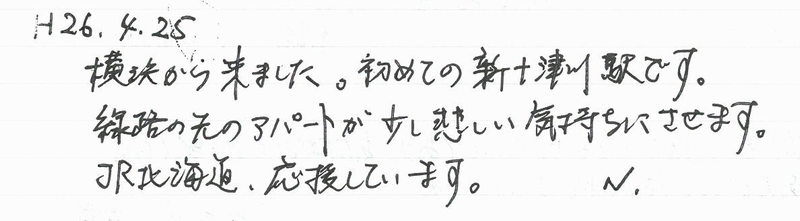 H26.4.25
横浜から来ました。初めての新十津川駅です。
線路の先のアパートが少し悲しい気持ちにさせます。
JR北海道、応援しています。 N.